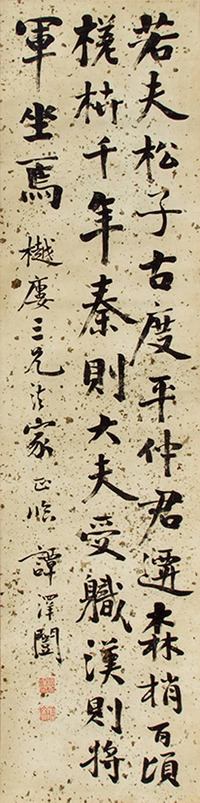 若夫松子古度平仲君遷森梢百頃
槎枿千年秦則大夫受職漢則將
軍坐焉 樾廔三兄法家正臨 譚澤闓